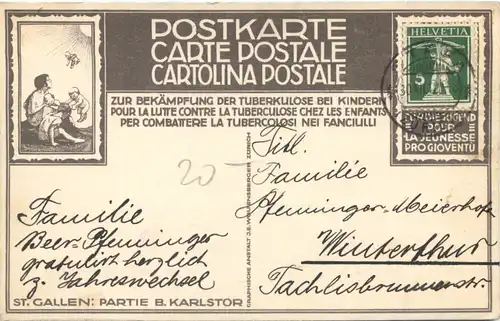 POSTKARTE
CARTE POSTALE
CARTOLINA POSTALE
HELVETIA
5
FÜR DIE JUGEND
POUR
LA JEUNESSE
PRO GIOVENTÙ
ZUR BEKÄMPFUNG DER TUBERKULOSE BEI KINDERN
POUR LA LUTTE CONTRE LA TUBERCULOSE CHEZ LES ENFANTS
PER COMBATTERE LA TUBERCOLOSI NEI FANCIULLI
20-
Familie
Beer-Pfenninger
gratuliert herzlich
z. Jahreswechsel
ST. GALLEN: PARTIE B. KARLSTOR
GRAPHISCHE ANSTALT J.E. WOLFENSBERGER ZÜRICH
Titl.
Familie
Pfenninger-Meierhofer
Winterthur
Tachlisbrunnenstr.